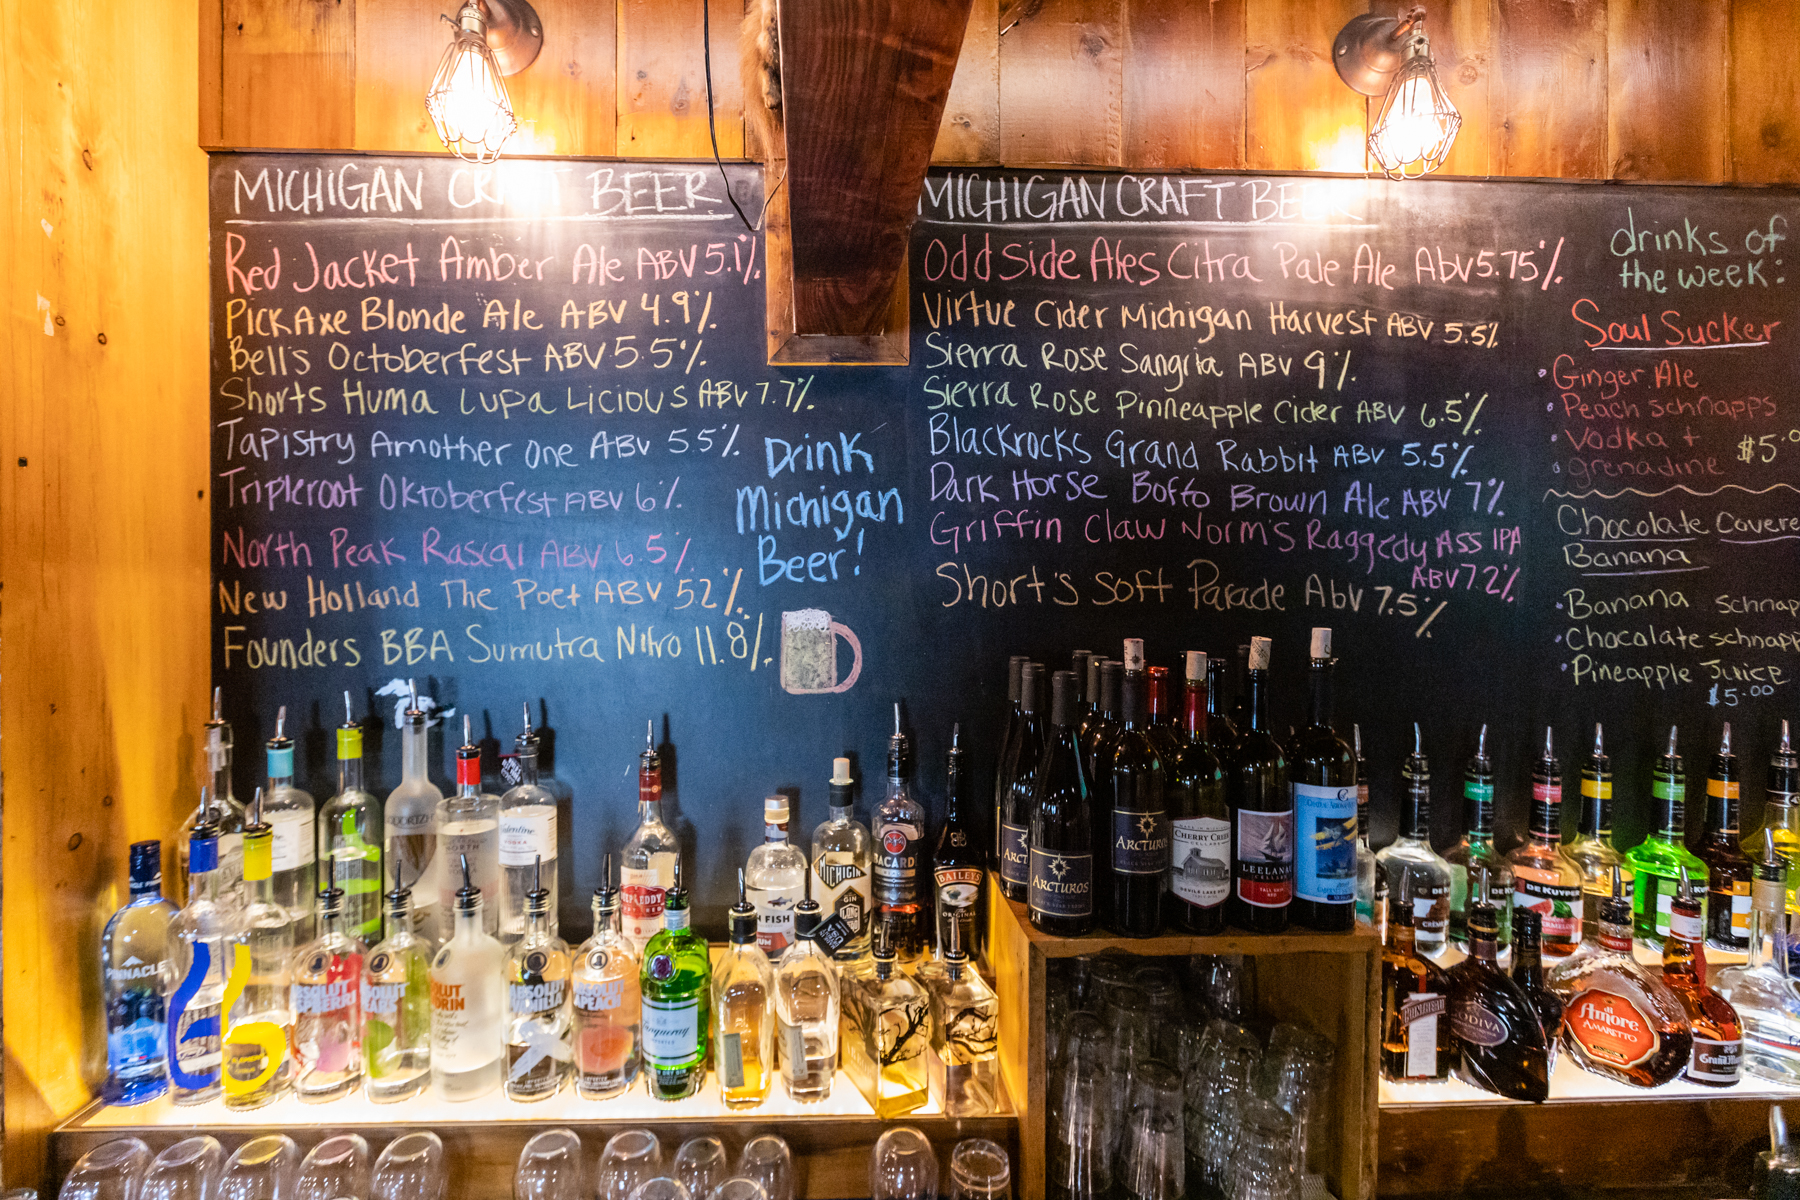 MICHIGAN CRAFT BEER
Red Jacket Amber Ale ABV 5.1%
Pick Axe Blonde Ale ABV 4.9%
Bell's Octoberfest ABV 5.5%
Shorts Huma Lupa Licious ABV 7.7%
Tapistry Amother One ABV 5.5%
Tripleroot Oktoberfest ABV 6%
North Peak Rascal ABV 6.5%
New Holland The Poet ABV 5.2%
Founders BBA Sumutra Nitro 11.8%
Drink
Michigan
Beer!
MICHIGAN CRAFT BEER
Odd Side Ales Citra Pale Ale Abv 5.75%
Virtue Cider Michigan Harvest ABV 5.5%
Sierra Rose Sangria ABV 9%
Sierra Rose Pinneapple Cider ABV 6.5%
Blackrocks Grand Rabbit ABV 5.5%
Dark Horse Boffo Brown Ale ABV 7%
Griffin Claw Norm's Raggedy Ass IPA
ABV 7.2%
Short's Soft Parade Abv 7.5%
drinks of
the week:
Soul Sucker
• Ginger Ale
• Peach schnapps
• Vodka +
• grenadine
$5.0
Chocolate Covere
Banana
• Banana schnap
• Chocolate schnapp
• Pineapple Juice
$5.00
PINNACLE
ABSOLUT
ABSOLUT
VANILIA
ABSOLUT
APEACH
Tanqueray
FISH
MICHIGIN
GIN
BACARDI
BAILEYS
ORIGINAL
ARCTUROS
ARCTUROS
CHERRY CREEK
CELLARS
LEELANAU
CELLARS
TALL SHIP
RED
DE KUYPER
DE KUYPER
GODIVA
di
Amore
AMARETTO